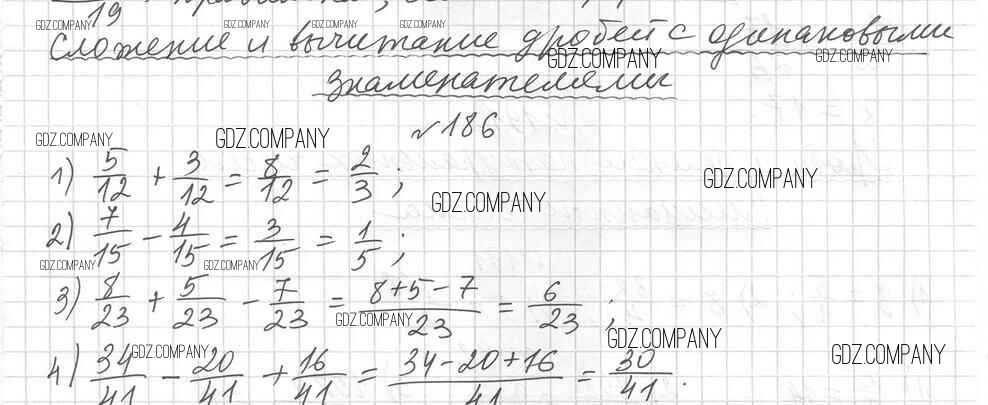 19
GDZ.COMPANY GDZ.COMPANY GDZ.COMPANY
Сложение и вычитание дробей с одинаковыми
GDZ.COMPANY GDZ.COMPANY
знаменателями
№ 186
GDZ.COMPANY GDZ.COMPANY
1) 5/12 + 3/12 = 8/12 = 2/3 ;
GDZ.COMPANY GDZ.COMPANY
2) 7/15 - 4/15 = 3/15 = 1/5 ;
GDZ.COMPANY GDZ.COMPANY
3) 8/23 + 5/23 - 7/23 = (8+5-7)/23 = 6/23 ;
GDZ.COMPANY GDZ.COMPANY
4) 34/41 - 20/41 + 16/41 = (34-20+16)/41 = 30/41 .
GDZ.COMPANY GDZ.COMPANY